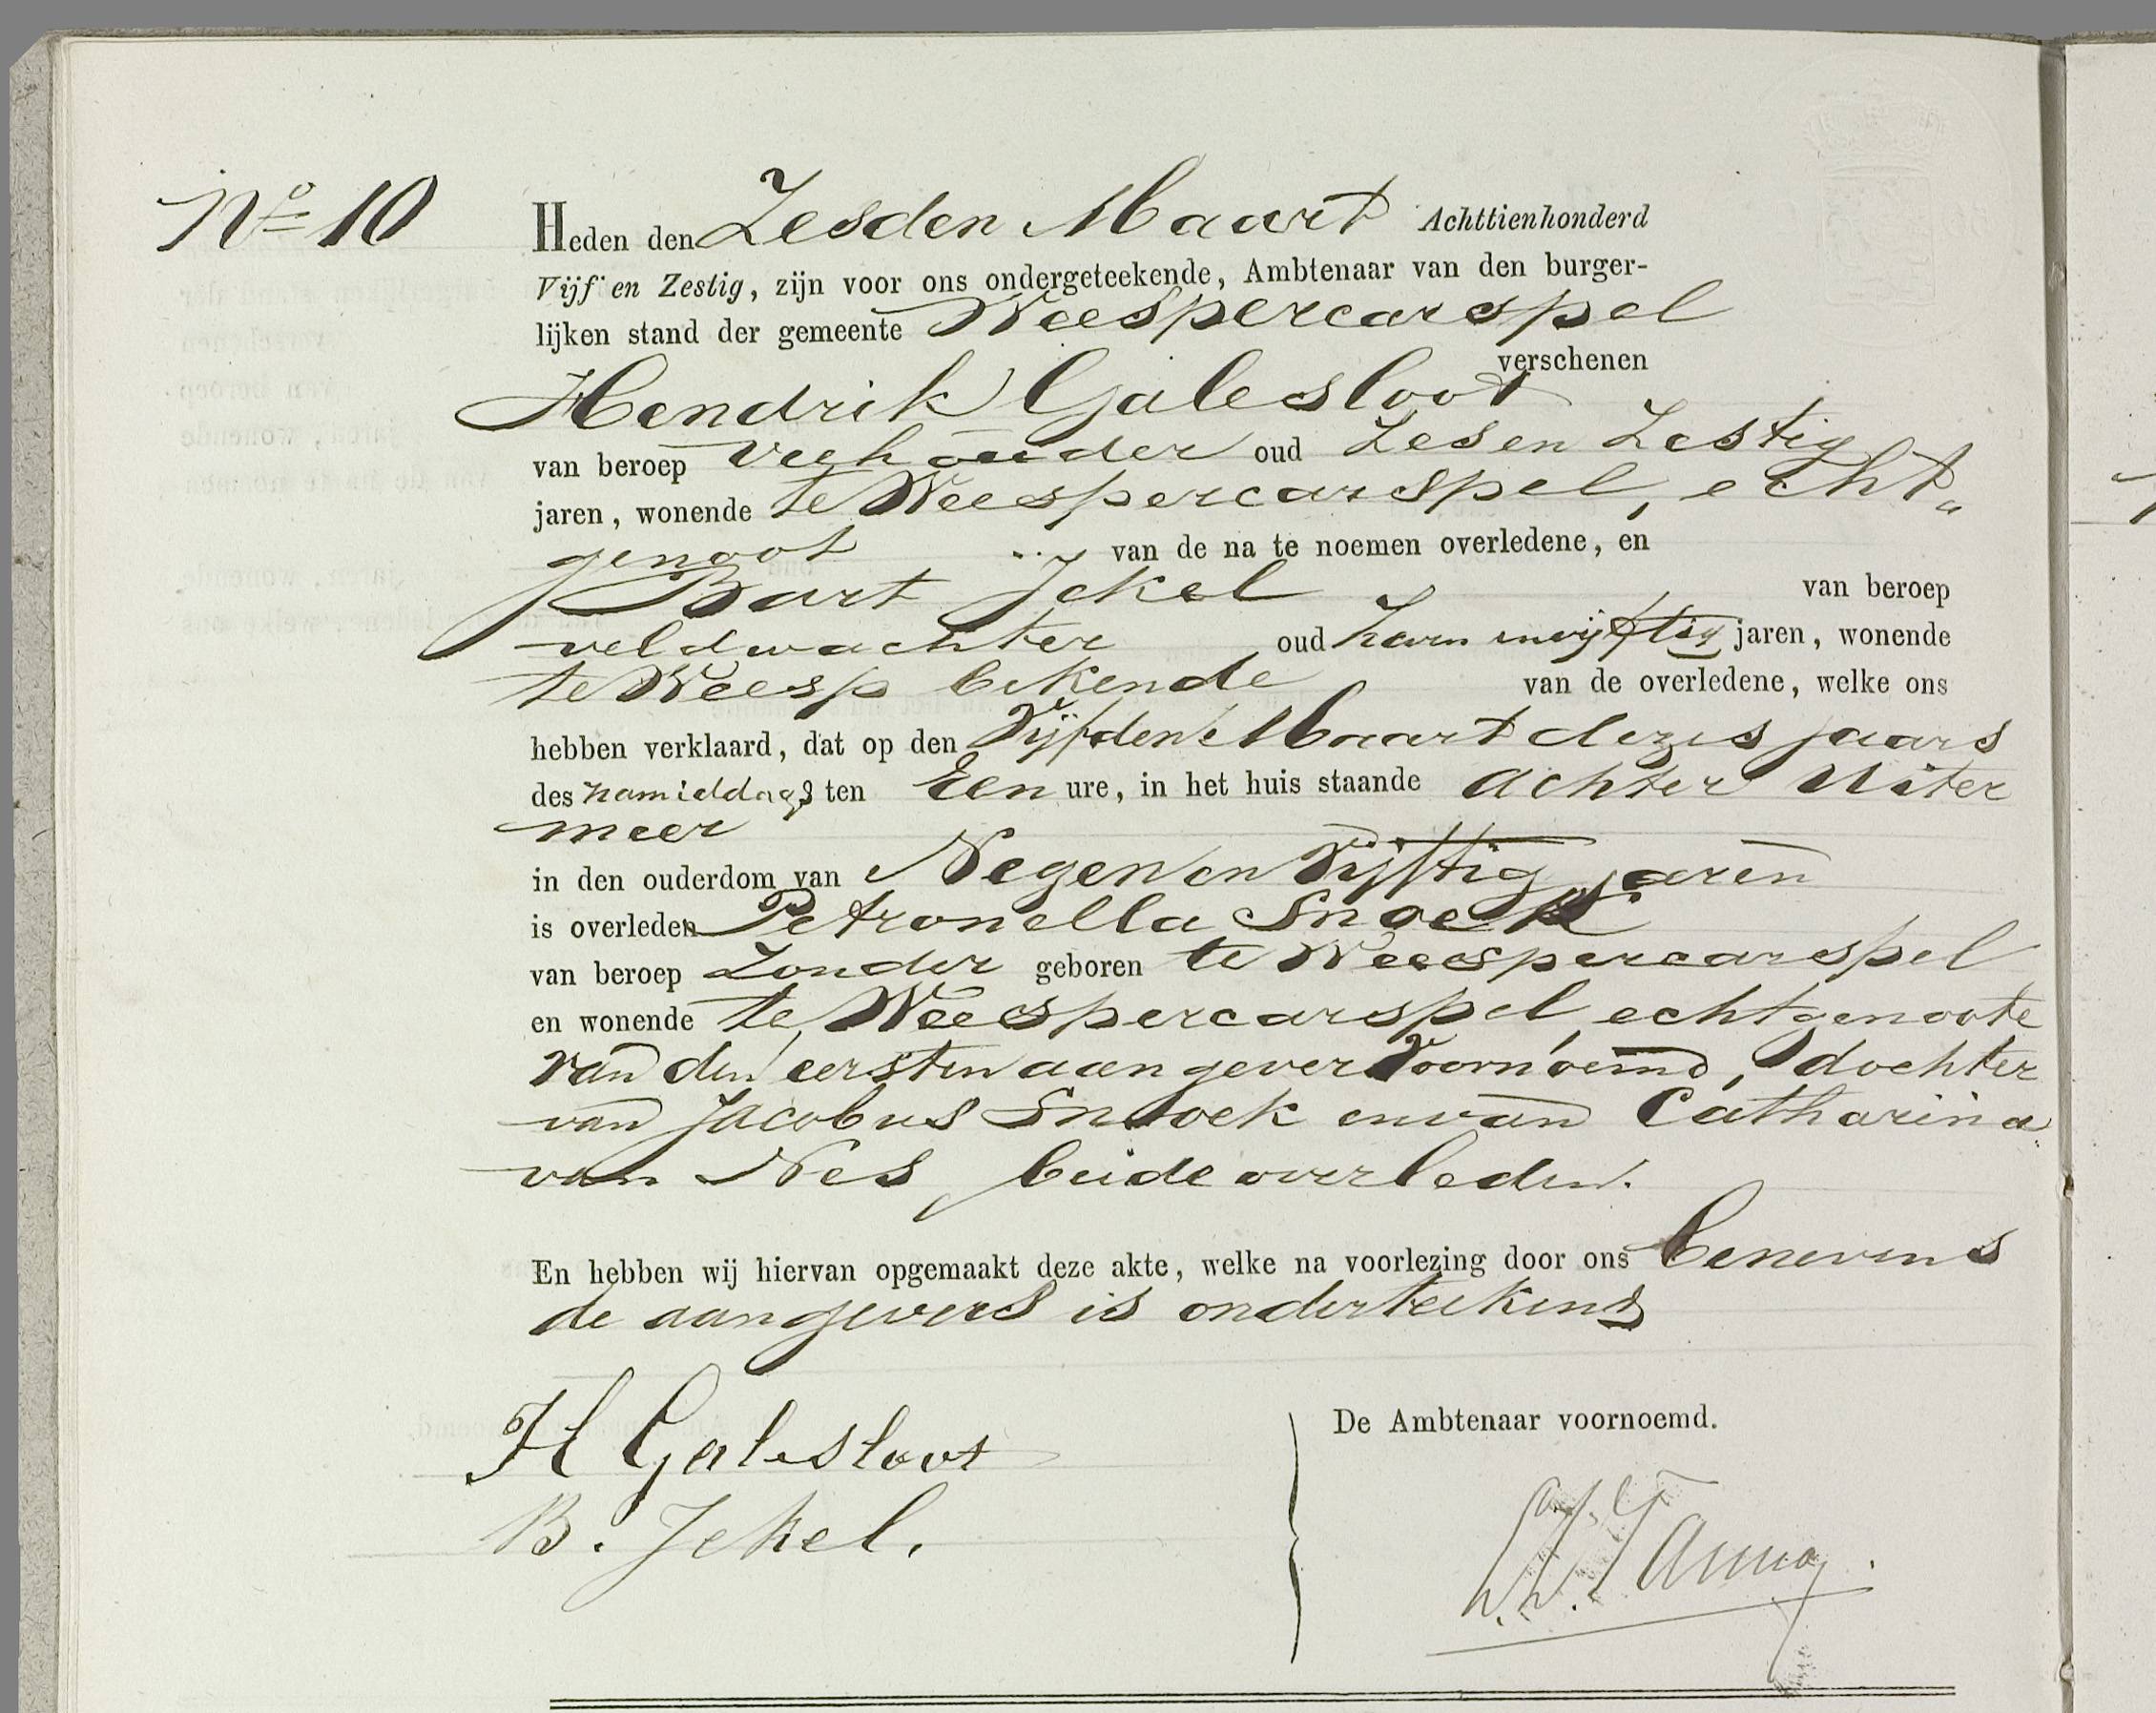 No 10
Heden den Zesden Maart Achttienhonderd
Vijf en Zestig, zijn voor ons ondergeteekende, Ambtenaar van den burger-
lijken stand der gemeente Weespercarspel
verschenen
Hendrik Galesloot
van beroep veehouder oud Zes en Zestig
jaren, wonende te Weespercarspel, echt„
genoot van de na te noemen overledene, en
Bart Jekel van beroep
veldwachter oud envijftig jaren, wonende
te Weesp bekende van de overledene, welke ons
hebben verklaard, dat op den Vijfden Maart dezes jaars
des namiddags ten Een ure, in het huis staande achter Uiter
meer
in den ouderdom van Negen en Vijftig jaren
is overleden Petronella Snoek
van beroep Zonder geboren te Weespercarspel
en wonende te Weespercarspel, echtgenoote
van den eersten aangever Voornoemd, dochter
van Jacobus Snoek en van Catharina
van Nes, beide overleden.
En hebben wij hiervan opgemaakt deze akte, welke na voorlezing door ons benevens
de aangevers is onderteekend
H Galesloot
De Ambtenaar voornoemd.
B. Jekel.